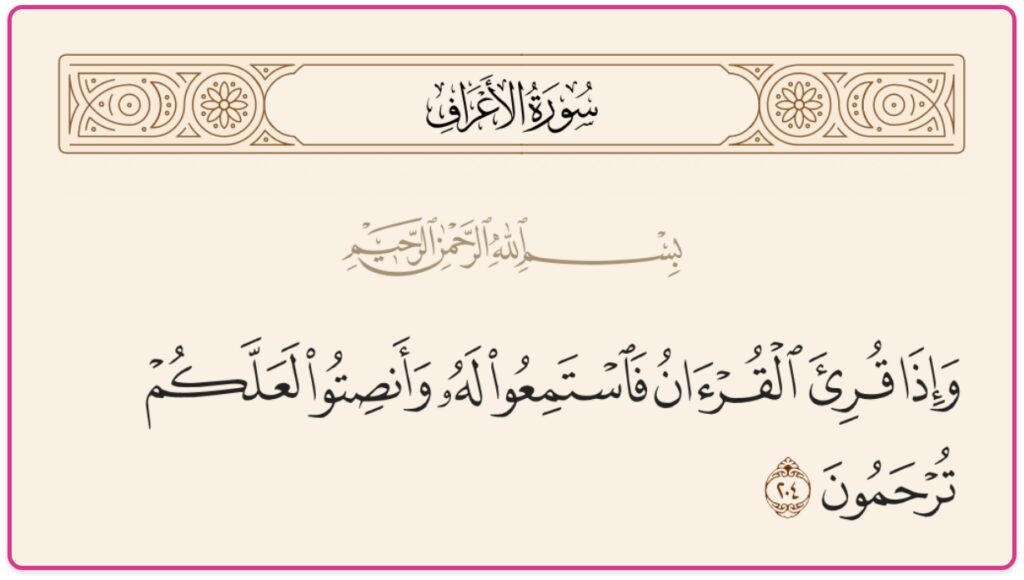 سُورَةُ الأَعْرَافِ
بِسْمِ ٱللَّهِ ٱلرَّحْمَٰنِ ٱلرَّحِيمِ
وَإِذَا قُرِئَ ٱلْقُرْءَانُ فَٱسْتَمِعُوا۟ لَهُۥ وَأَنصِتُوا۟ لَعَلَّكُمْ
تُرْحَمُونَ ٢٠٤